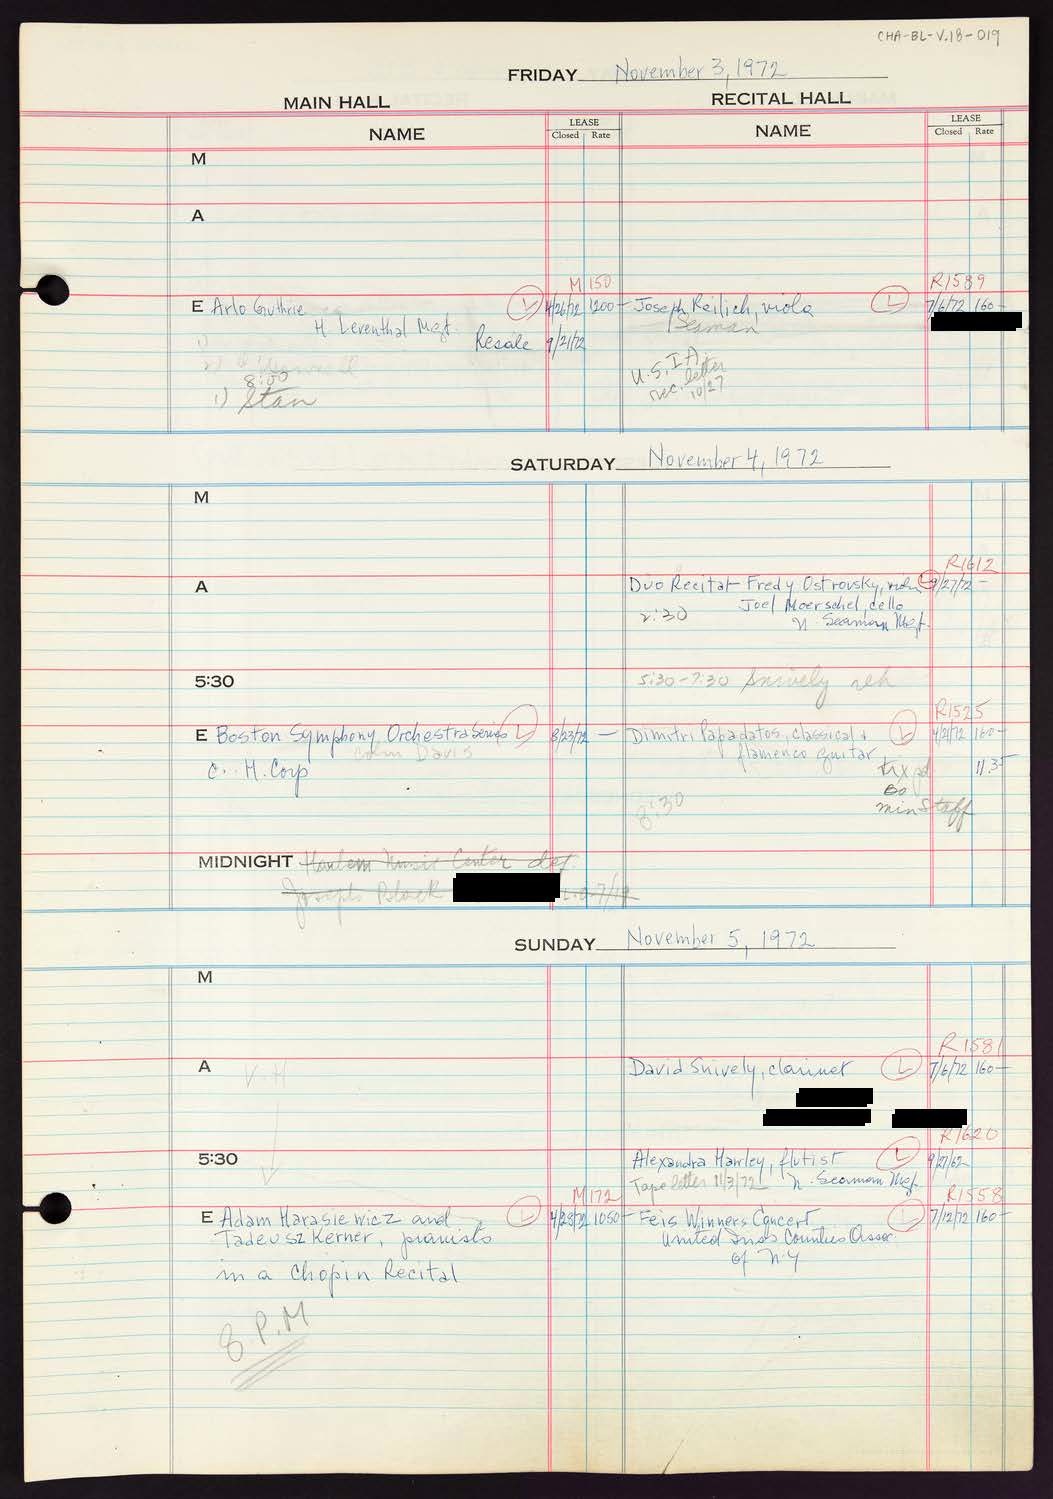 CHA-BL-V.18-019
FRIDAY November 3, 1972
MAIN HALL RECITAL HALL
NAME LEASE Closed Rate NAME LEASE Closed Rate
M
A
M 150 R1589
E Arlo Guthrie L 4/26/72 1200- Joseph Reilich, viola L 7/6/72 160-
H. Leventhal Mgt. Seaman
Resale 9/21/72
8:00 U.S.I.A.
1) Stan rec. letter
10/27
SATURDAY November 4, 1972
M
R1612
A Duo Recital- Fredy Ostrovsky, L 9/27/72 -
2:30 Joel Moerschel, cello
N. Seaman Mgt.
5:30 5:30-7:30 Snively reh
R1525
E Boston Symphony Orchestra Series L 8/23/72 - Dimitri Papadatos, classical + L 4/21/72 160-
Colin Davis flamenco guitar
C. H. Corp tix pd. 11.35
BO
8:30 min Staff
MIDNIGHT Harlem Music Center def
Joseph Black
SUNDAY November 5, 1972
M
R1581
A V.H David Snively, clarinet L 7/6/72 160-
R1620
5:30 Alexandra Hawley, flutist L 9/27/62
Tape letter 11/3/72 N. Seaman Mgt.
M172 R1558
E Adam Harasiewicz and L 4/28/72 1050- Feis Winners Concert L 7/12/72 160-
Tadeusz Kerner, pianists United Irish Counties Assoc.
in a Chopin Recital of N.Y
8 P.M